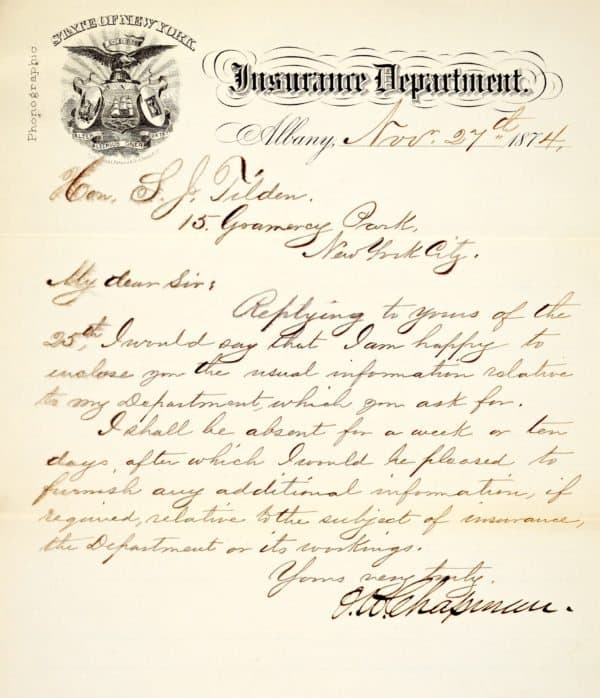 STATE OF NEW YORK.
Phonographic
Insurance Department.
Albany, Nov. 27th 1874.
Hon. S. J. Tilden.
15. Gramercy Park,
New York City.
My dear Sir:
Replying to yours of the
25th, I would say that I am happy to
inclose you the usual information relative
to my Department, which you ask for.
I shall be absent for a week or ten
days, after which I would be pleased to
furnish any additional information, if
required, relative to the subject of insurance,
the Department or its workings.
Yours very truly.
O. W. Chapman.